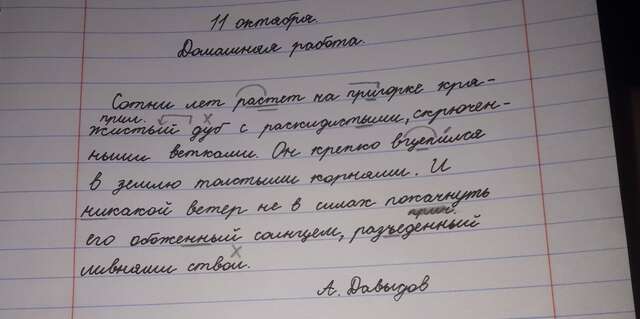 11 октября.
Домашняя работа.
Сотни лет растет на пригорке кря-
прил. х
жистый дуб с раскидистыми, скрючен-
ными ветками. Он крепко вцепился
в землю толстыми корнями. И
никакой ветер не в силах покачнуть
прич.
его обоженный солнцем, разъеденный
х
ливнями ствол.
А. Давыдов